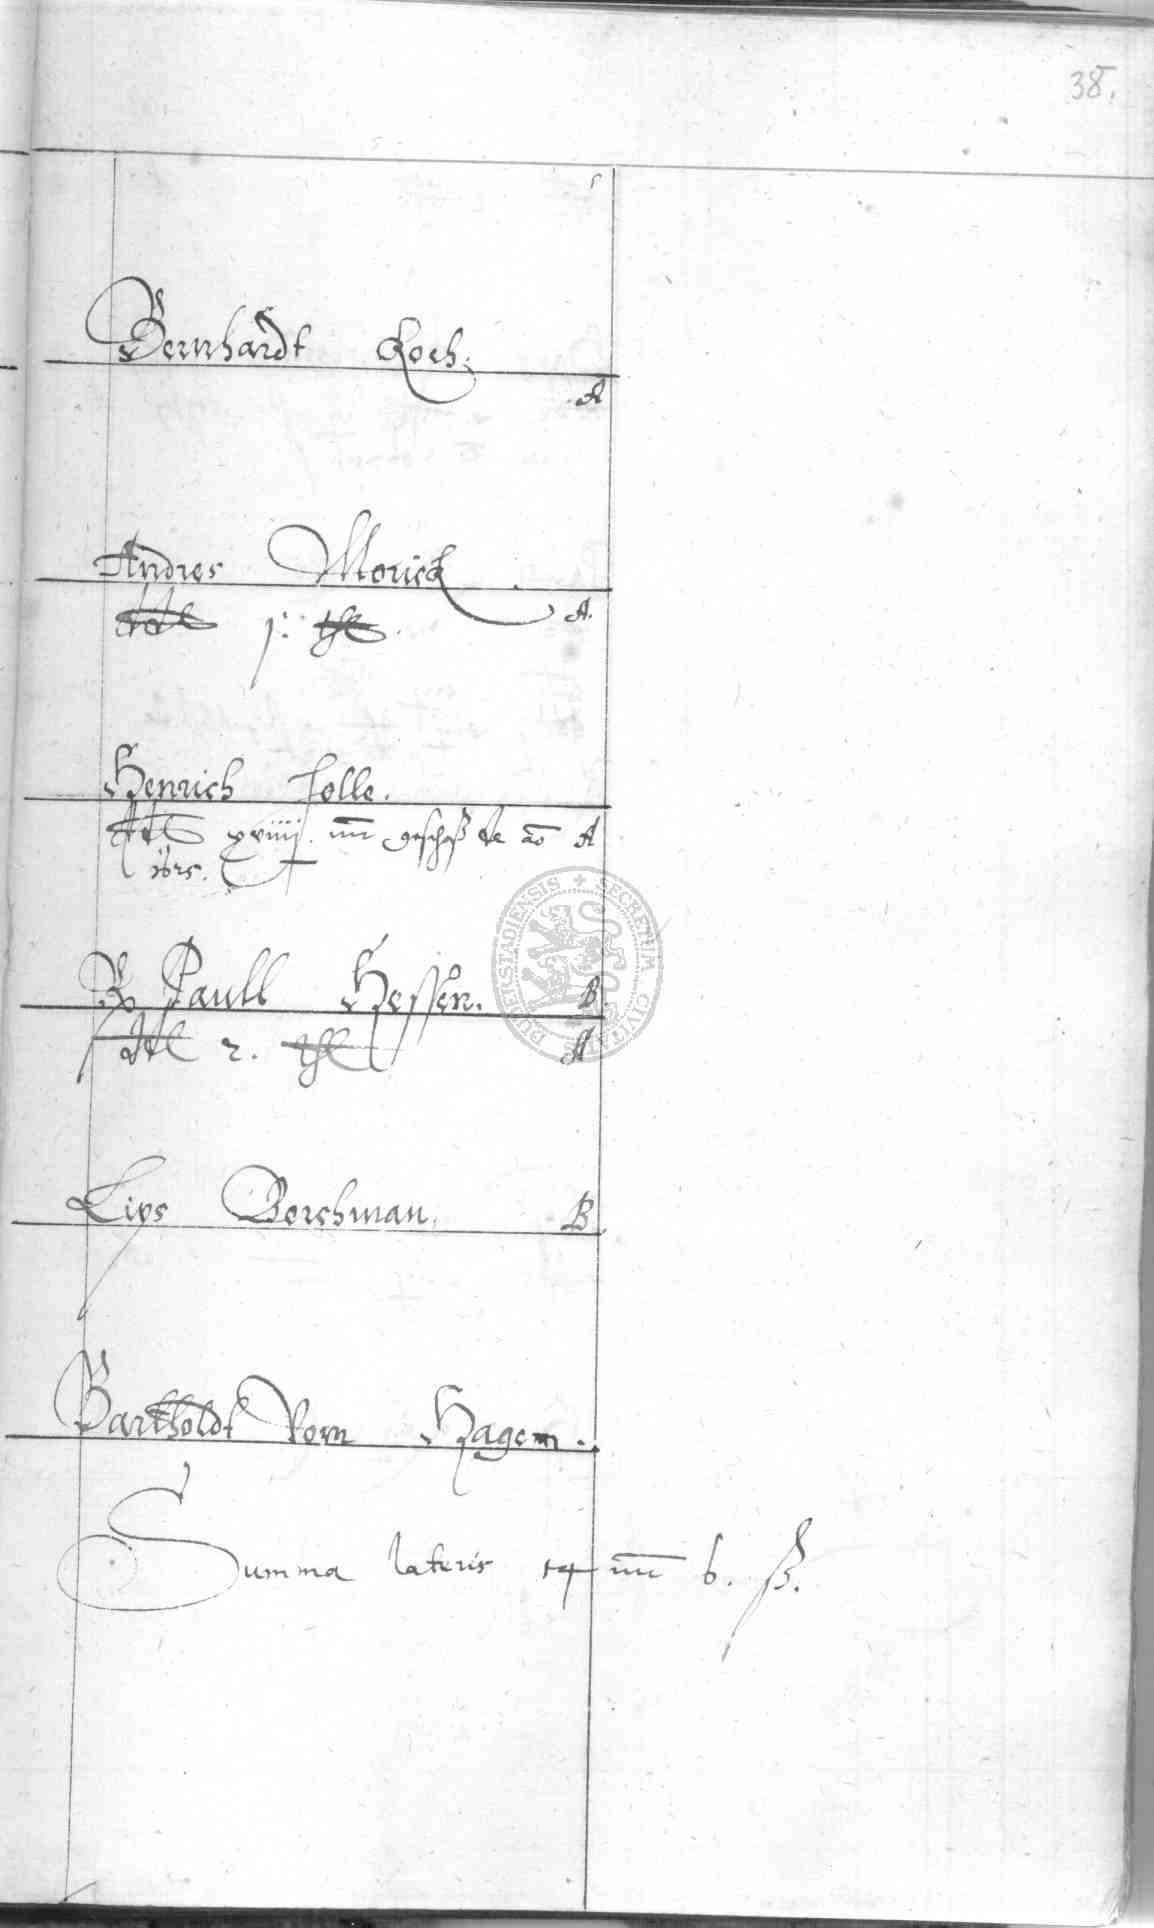 38.
Bernhardt Koch.
A
Andres Morick
A.
j:
Henrich Jolle.
geschoß de ao A
1625.
Paull Hessen. B
2. A
Lips Borchman. B
Barthold Vom Hagen.
Summa lateris 6. ß.
SECRETUM CIVITATIS DUDERSTADIENSIS